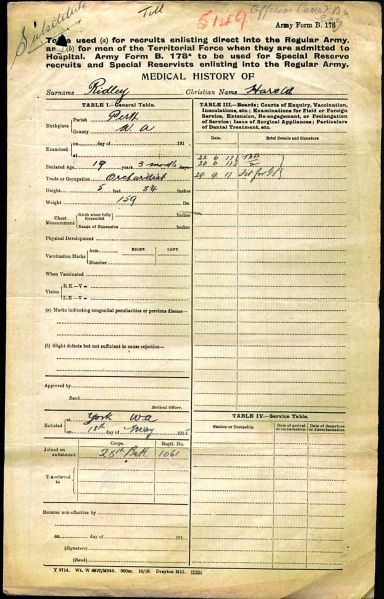 Substitute
5149
Army Form B. 178
To be used (a) for recruits enlisting direct into the Regular Army,
and (b) for men of the Territorial Force when they are admitted to
Hospital. Army Form B. 178A to be used for Special Reserve
recruits and Special Reservists enlisting into the Regular Army.
MEDICAL HISTORY OF
Surname Ridley Christian Name Harold
TABLE I.—General Table.
Birthplace Parish Perth
County W. A
Examined on day of 191
at
Declared Age 19 years 3 months days
Trade or Occupation Orchardist
Height 5 feet 8¼ inches
Weight 159 lbs.
Chest Measurement Girth when fully Expanded inches
Range of Expansion inches
Physical Development
RIGHT. LEFT.
Vaccination Marks Arm
Number
When Vaccinated
Vision R.E.—V=
L.E.—V=
(a) Marks indicating congenital peculiarities or previous disease—
(b) Slight defects but not sufficient to cause rejection—
Approved by
Rank
Medical Officer.
Enlisted at York WA
on 18th day of May 1915
Corps. Regtl. No.
Joined on enlistment 28th Batt 1061
Transferred to
Became non-effective by
on day of 191
(Signature)
(Rank)
TABLE III.—Boards; Courts of Enquiry, Vaccination,
Inoculation, etc.; Examinations for Field or Foreign
Service, Extension, Re-engagement, or Prolongation
of Service; Issue of Surgical Appliances; Particulars
of Dental Treatment, etc.
Date. Brief Details and Signature.
22 6 17
29. 9. 17
TABLE IV.—Service Table.
Station or Troopship. Date of arrival or embarkation Date of departure or disembarkation